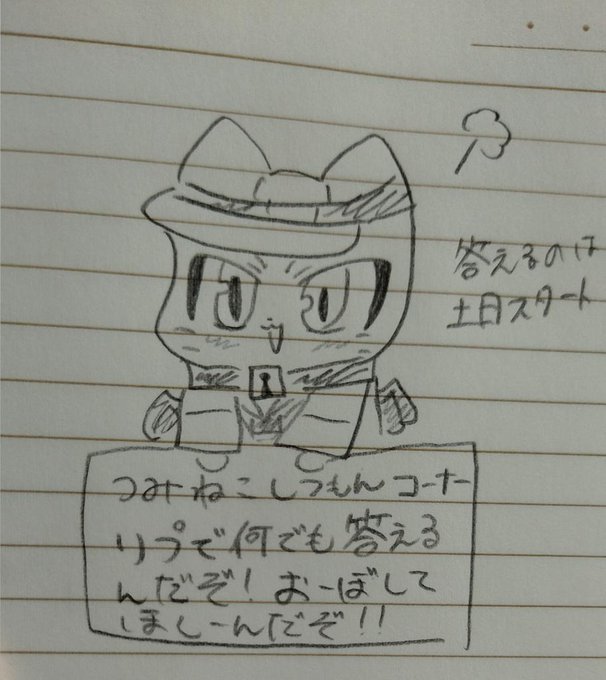 答えるのは
土日スタート
つみねこしつもんコーナー
リプで何でも答える
んだぞ!おーぼして
ほしーんだぞ!!